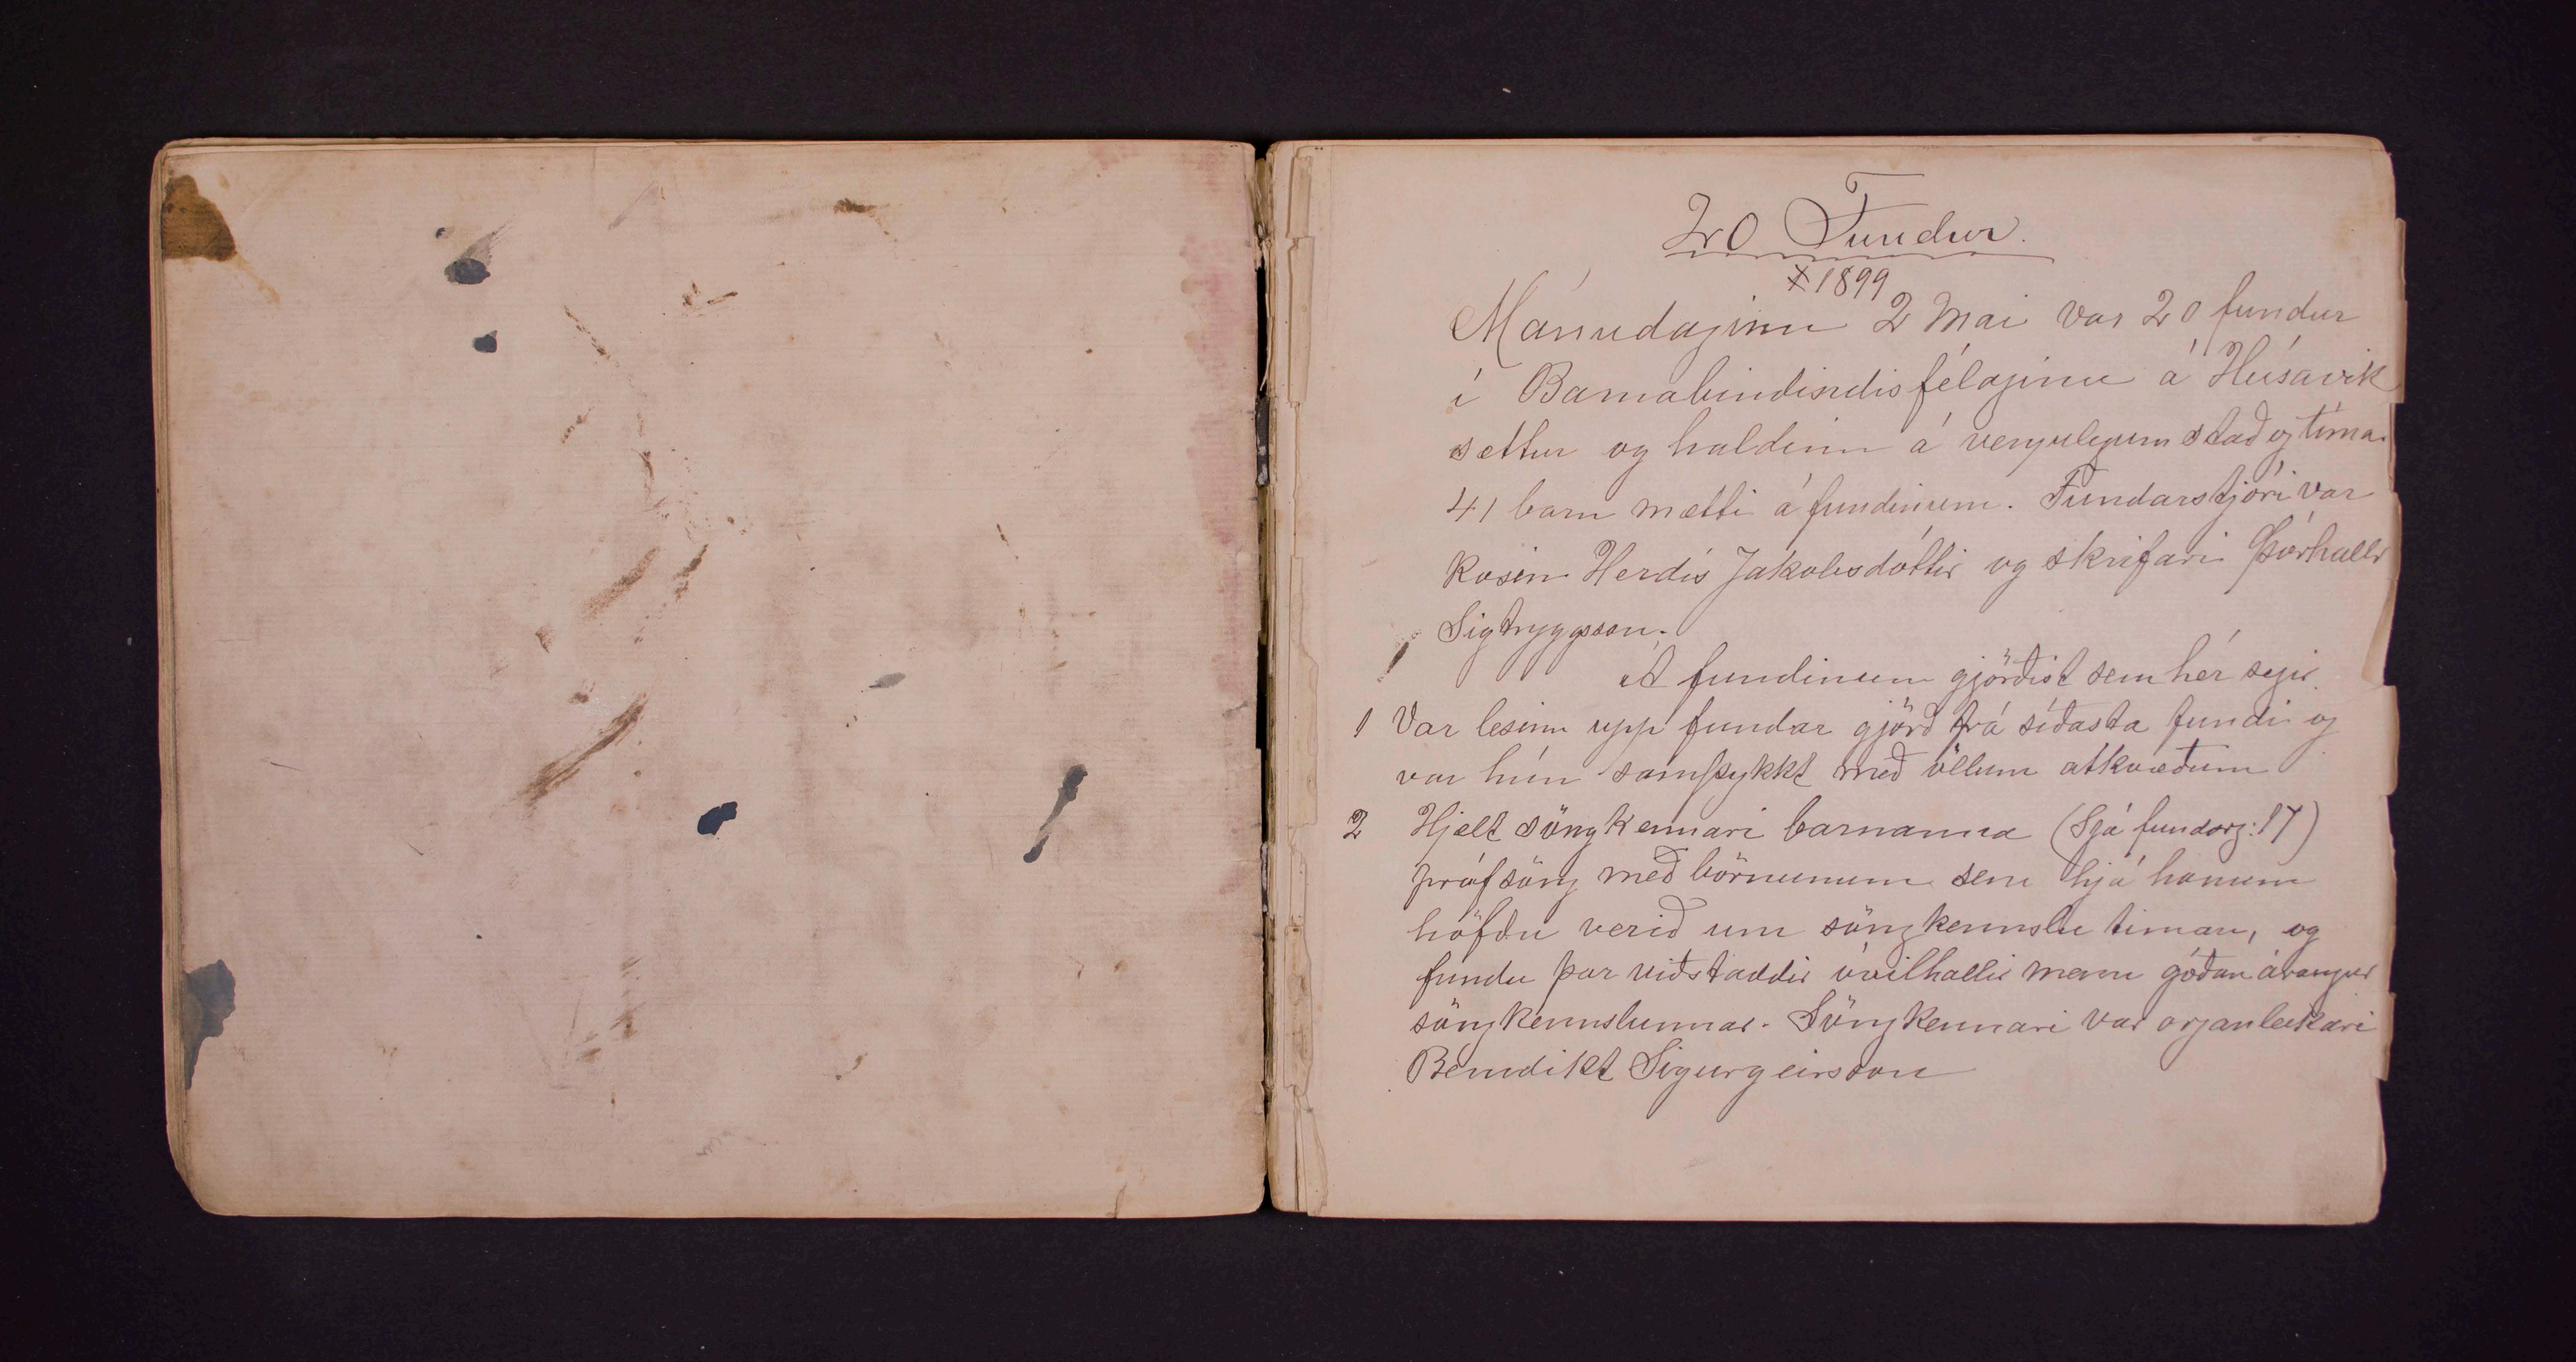 20 Fundur.
x 1899
Mánudaginn 2 Mai var 20 fundur
í Barnabindindisfélaginu á Húsavik
settur og haldinn á venjulegum stað og tíma.
41 barn mætti á fundinum. Fundarstjóri var
kosin Herdís Jakobsdóttir og skrifari Þórhallr
Sigtryggsson.
Á fundinum gjörðist sem hér segir.
1 Var lesinn upp fundar gjörð frá síðasta fundi og
var hún samþykkt með öllum atkvæðum
2 Hjelt söngkennari barnanna (Sjá fundarg: 17)
prófsöng með börnunum sem hjá honum
höfðu verið um söngkennslu timan, og
fundu þar viðstaddir óvilhallir menn góðan árangur
söngkennslunnar. Söngkennari var organleikari
Benidikt Sigurgeirsson